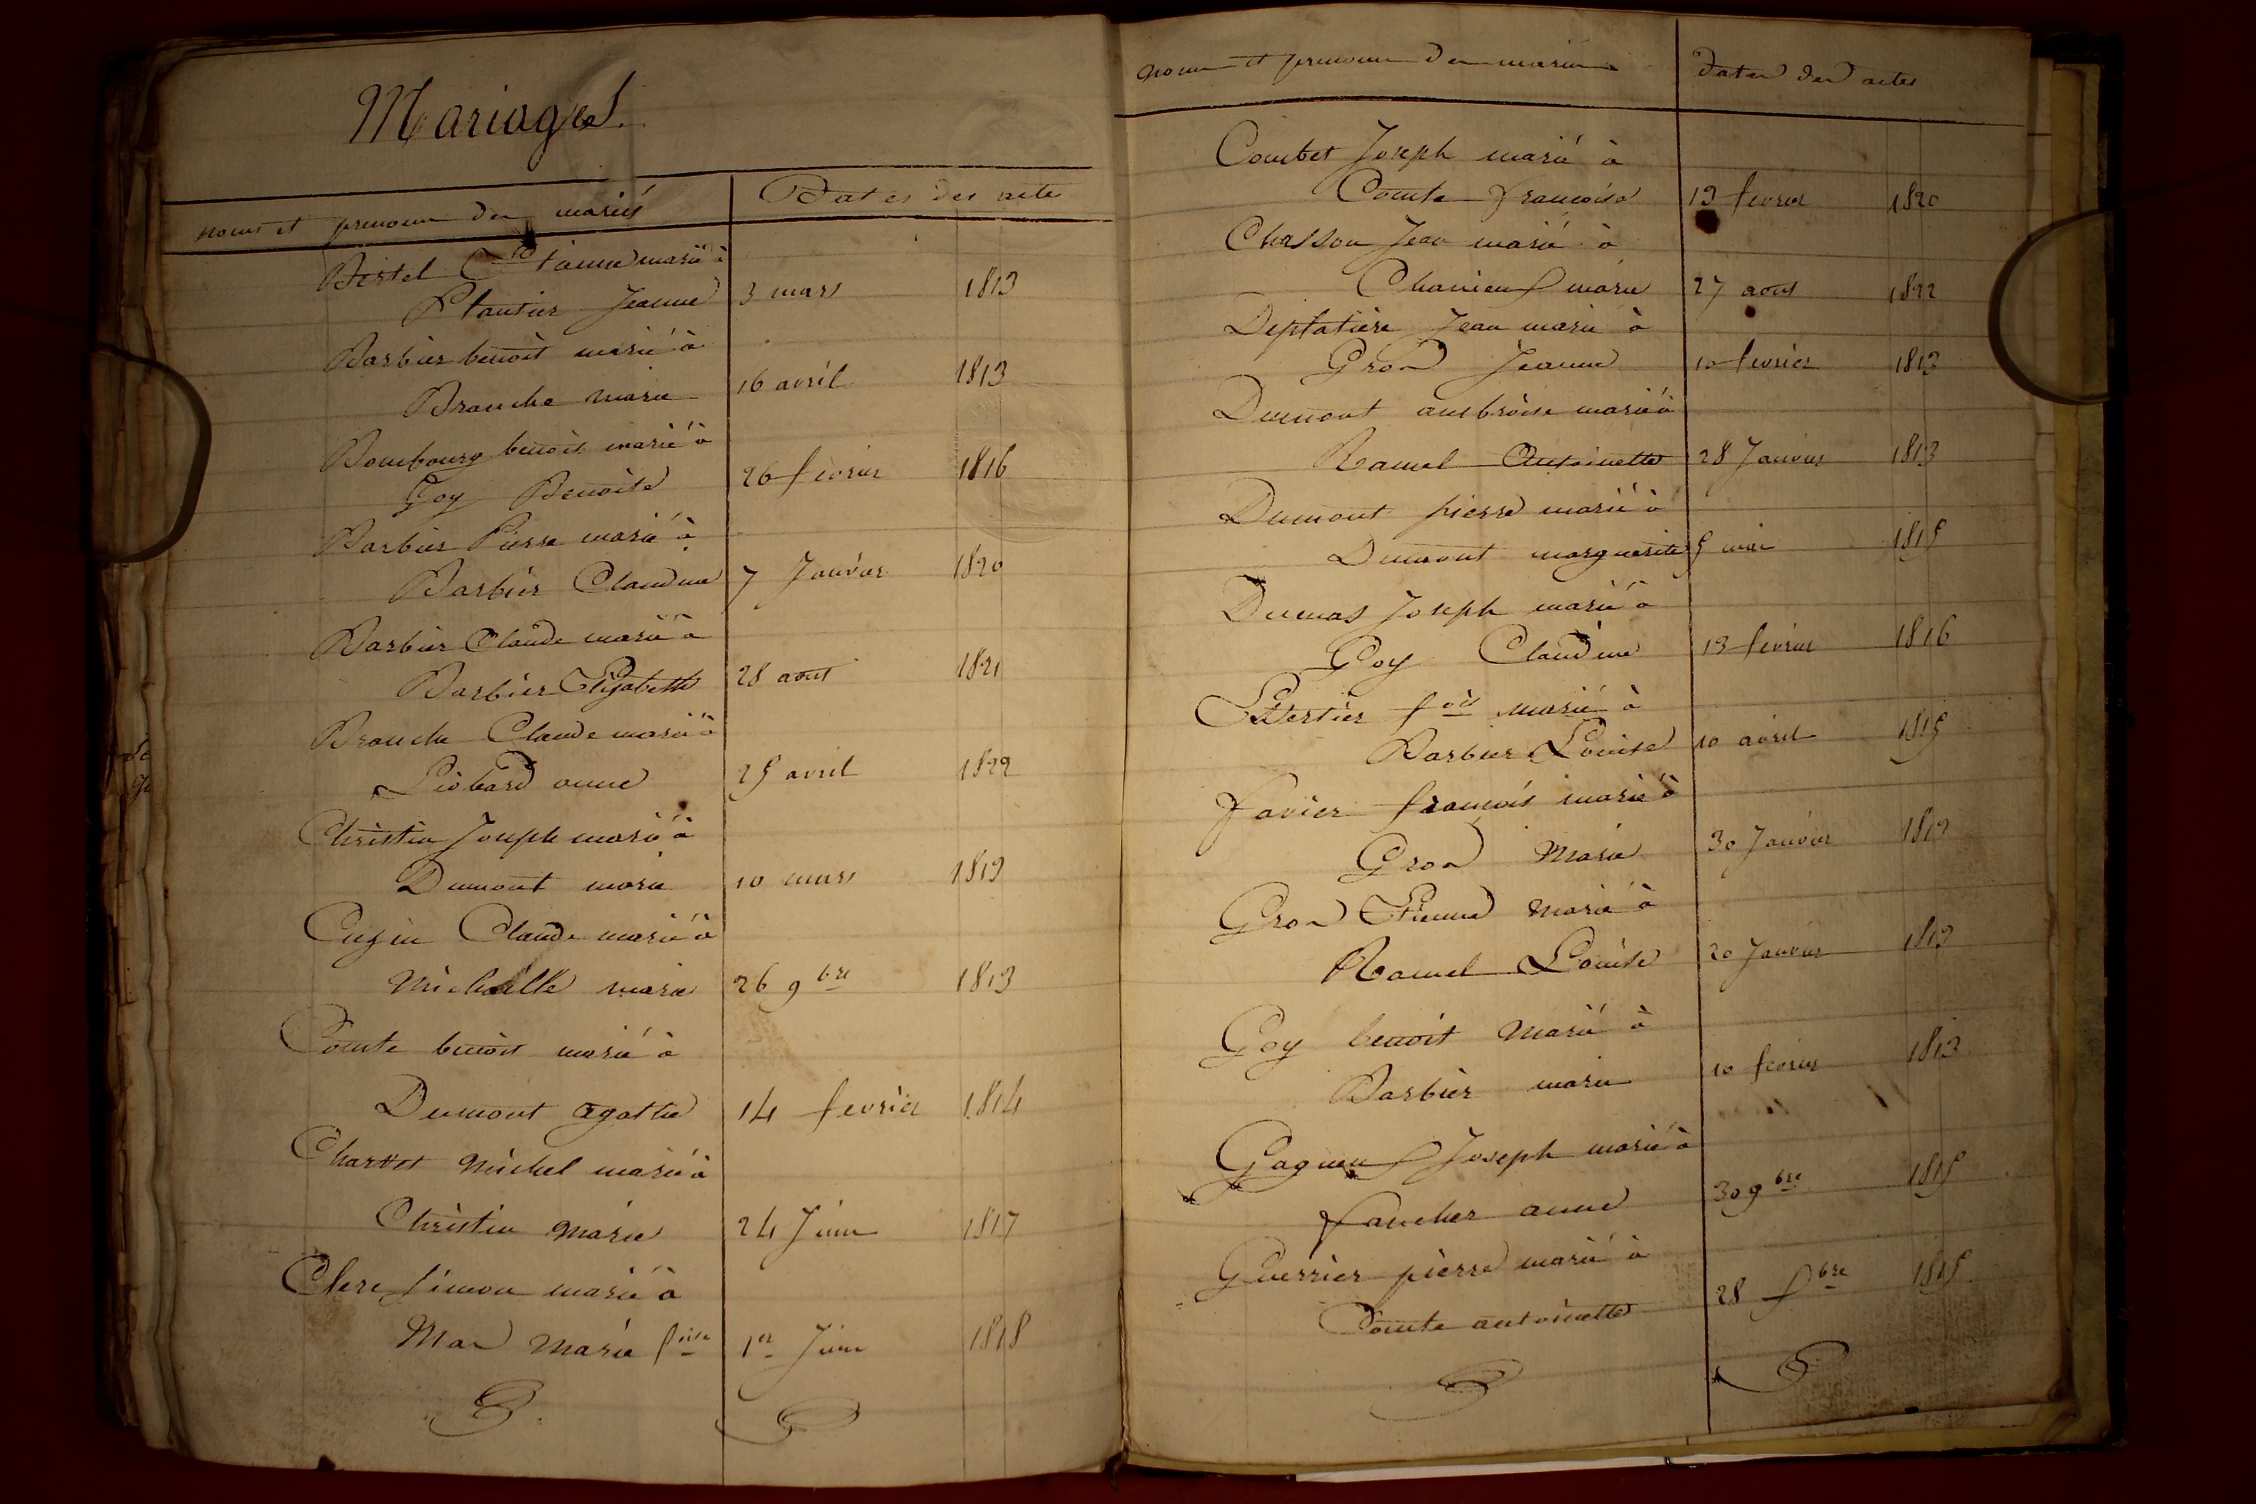 Mariages
noms et prenoms des mariés Dates des actes
Bertel Etienne marié à
Plantier Jeanne 3 mars 1813
Barbier benoit marié à
Branche marie 16 avril 1813
Bombourg benoit marié à
Goy Benoite 26 fevrier 1816
Barbier Pierre marié à
Barbier Claudine 7 Janvier 1820
Barbier Claude marié à
Barbier Elizabeth 28 aout 1821
Branche Claude marié à
Liobard anne 25 avril 1822
Christin Joseph marié à
Dumont marie 10 mars 1819
Cuzin Claude marié à
Michaille marie 26 9bre 1813
Comte benoit marié à
Dumont agathe 14 fevrier 1814
Charvet Michel marié à
Christin Marie 24 Juin 1817
Clerc Simon marié à
Mas Marie foise 1er Juin 1818
noms et prenoms des mariés dates des actes
Combet Joseph marié à
Comte francoise 19 fevrier 1820
Chasson Jean marié à
Chanieux marie 27 aout 1822
Deplatière Jean marié à
Gros Jeanne 10 fevrier 1813
Dumont ambroise marié à
Ramel Antoinette 28 Janvier 1813
Dumont pierre marié à
Dumont marguerite 5 mai 1815
Dumas Joseph marié à
Goy Claudine 13 fevrier 1816
fois marié à
Barbier Louise 10 avril 1815
favier francois marié à
Gros Marie 30 Janvier 1819
Gros Etienne Marié à
Ramel Louise 20 Janvier 1819
Goy benoit Marié à
Barbier marie 10 fevrier 1813
Gagneux Joseph marié à
faucher anne 30 9bre 1815
Guerrier pierre marié à
Comte antoinette 28 bre 1815